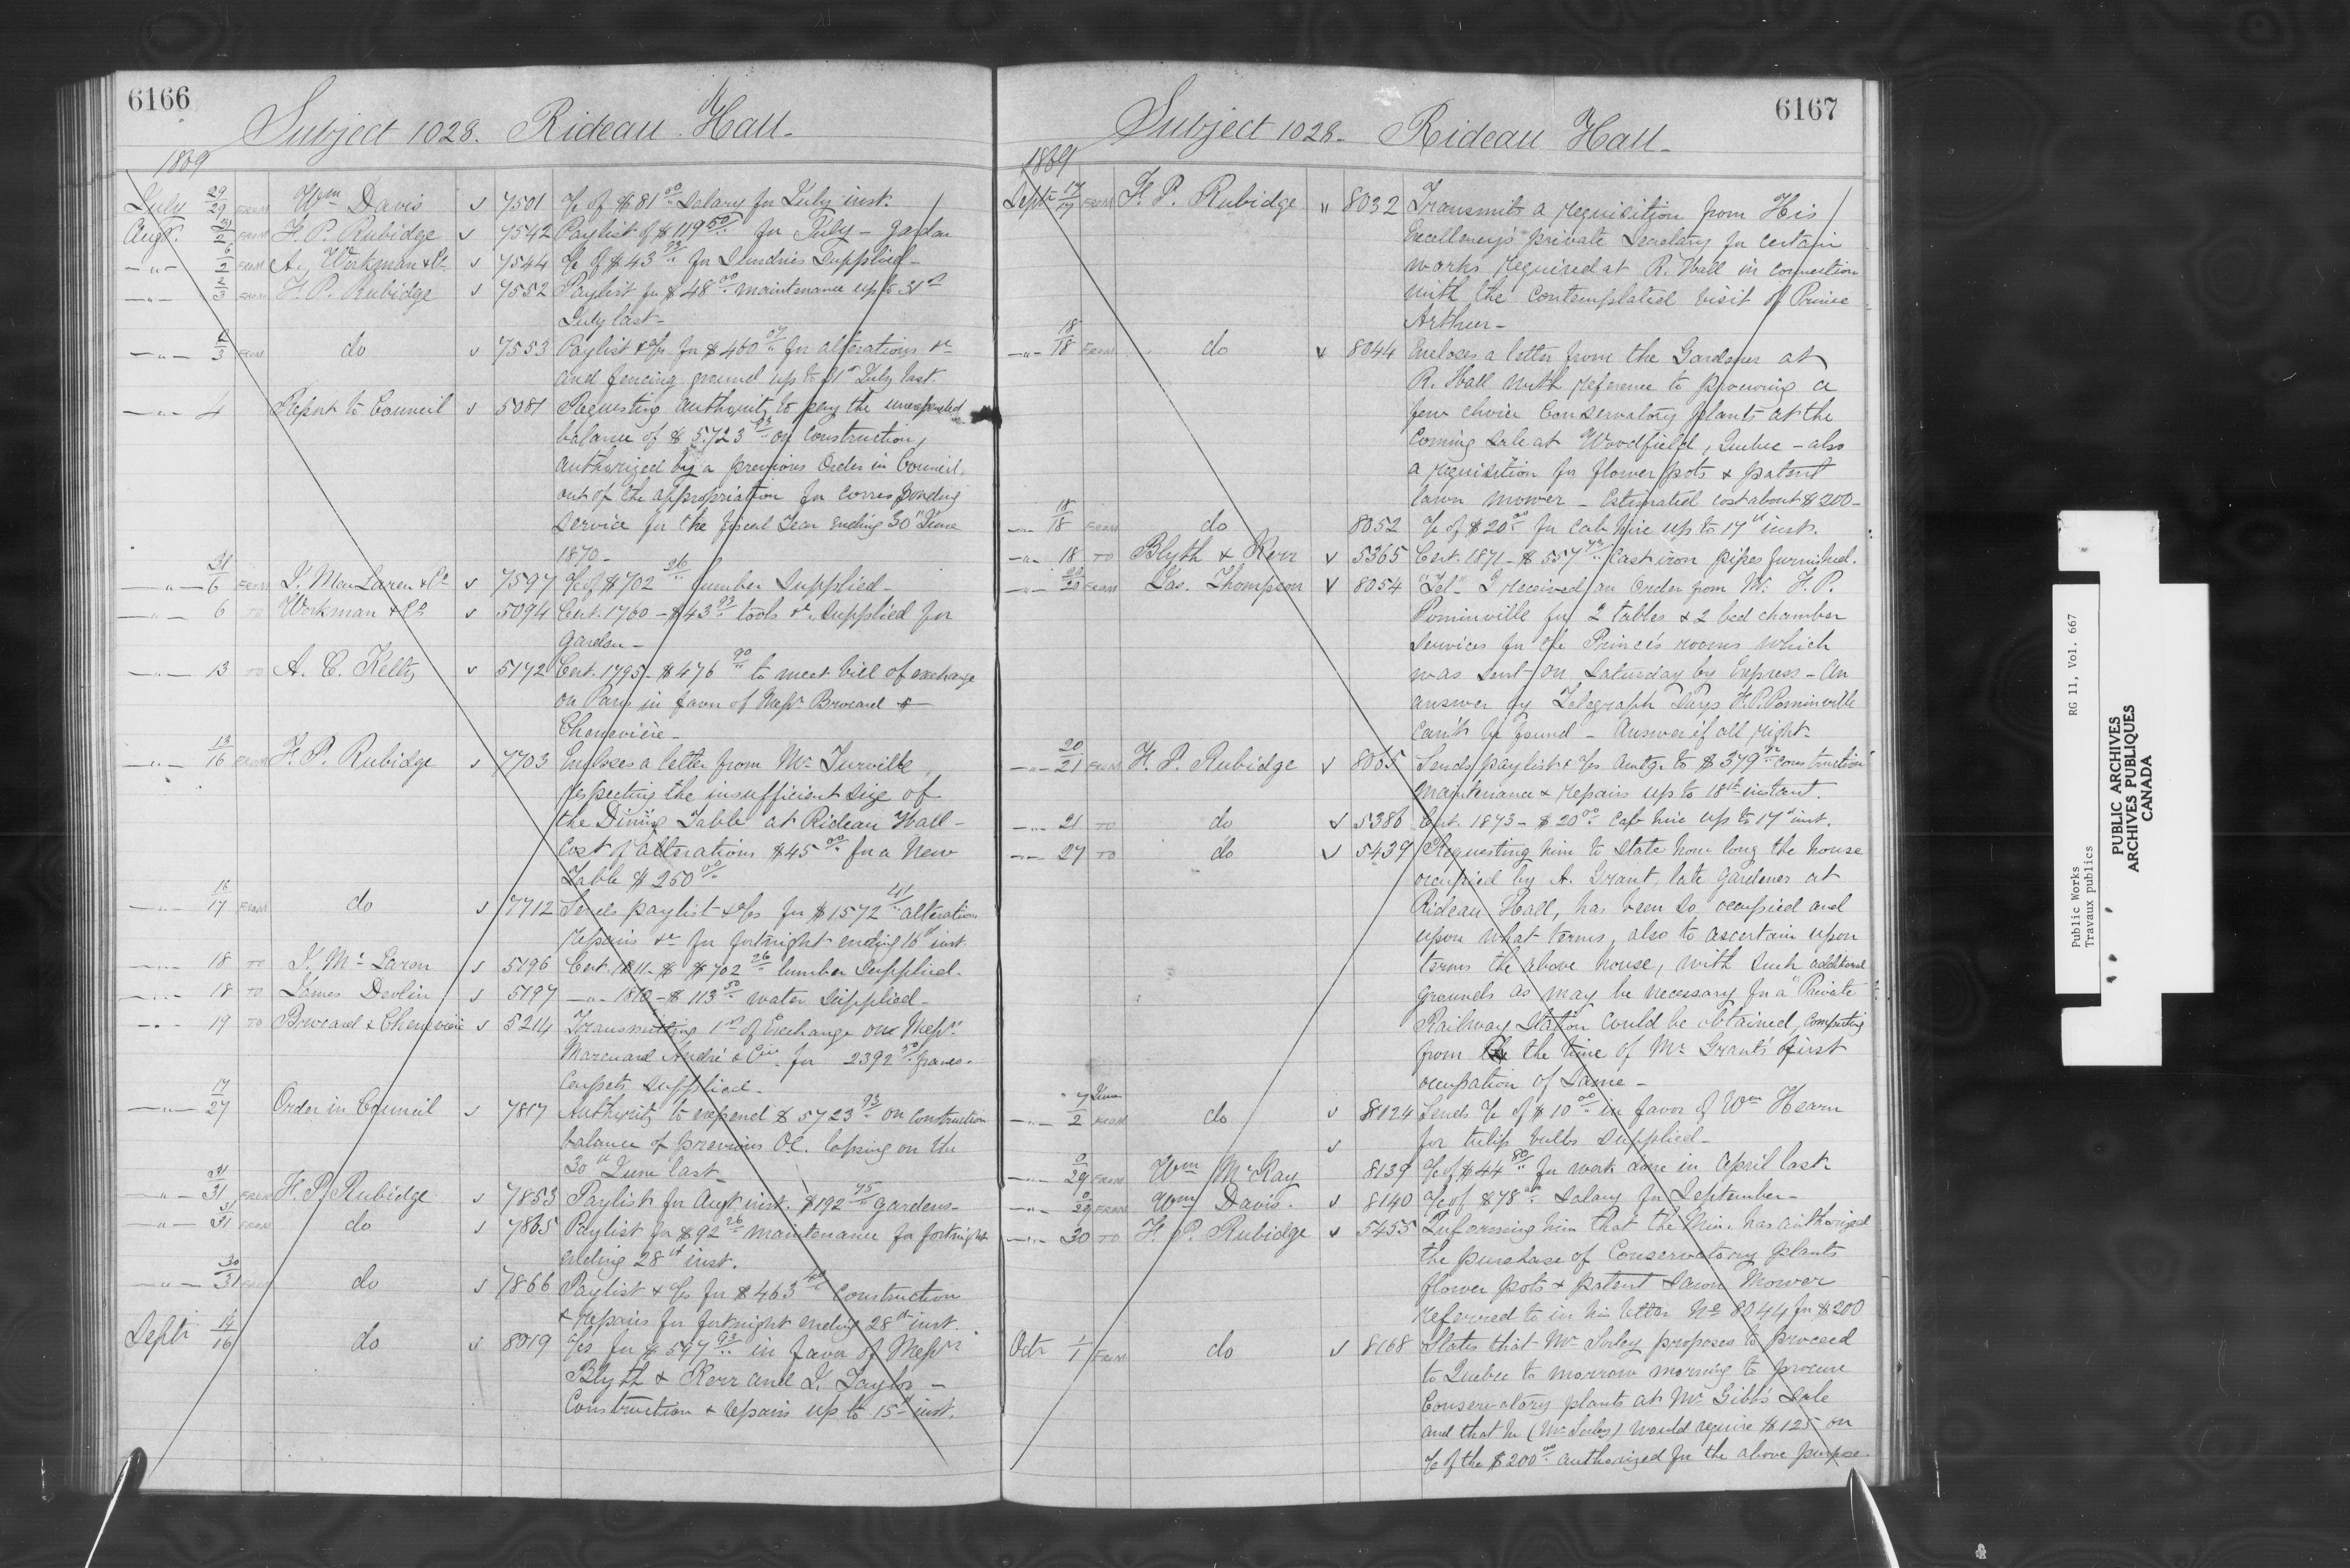 6166
Subject 1028. Rideau Hall-
1869
July 29/29 FROM Wm Davis 7501 a/c of $81 00/.. Salary for July inst.
Augt. 2 FROM F. P. Rubidge 7542 Paylist of $119 50/.. for July - Garden
-"- 2 FROM A. Workman & Co 7544 a/c of $43 93/.. for Sundries Supplied-
-"- 2/3 FROM F. P. Rubidge 7552 Paylist for $48 00/.. maintenance up to 31st
July last-
-"- 2/3 FROM do 7553 Paylist & a/cs for $460 07/.. for alterations &c
and fencing ground up to 31st July last.
-"- 4 Report to Council 5081 Requesting authority to pay the unexpended
balance of $5723 93/.. on construction,
authorized by a previous Order in Council,
out of the appropriation for corresponding
service for the fiscal Year ending 30th June
1870-
-"- 31/6 FROM J. MacLaren & Co 7597 a/c of $702 26/.. lumber supplied-
-"- 6 TO Workman & Co 5094 Cert. 1760 - $43 93/.. tools &c. supplied for
Garden-
-"- 13 TO A. C. Kelty 5172 Cert. 1795 - $476 90/.. to meet bill of exchange
on Paris in favor of Messrs Broward &
Chenevière-
-"- 13/16 FROM F. P. Rubidge 7703 Encloses a letter from Mr Turville
respecting the insufficient size of
the Dining Table at Rideau Hall-
Cost of alterations $45 00/.. for a New
Table $250 00/..
-"- 16/17 FROM do 7712 Sends paylist & a/cs for $1572 41/.. alterations
repairs &c for fortnight ending 16th inst.
-"- 18 TO J. Mc Laren 5196 Cert. 1811 - $702 26/.. lumber supplied-
-"- 18 TO James Devlin 5197 -"- 1810 - $113 50/.. water supplied-
-"- 19 TO Broward & Chenevière 5214 Transmitting 1st of Exchange on Messrs
Marcuard André & Cie for 2392 50/.. francs-
Carpets supplied-
-"- 17/27 Order in Council 7817 Authority to expend $5723 93/.. on construction
balance of previous OC. lapsing on the
30th June last-
-"- 31/31 FROM F. P. Rubidge 7853 Paylist for Augt inst. $192 75/.. gardens-
-"- 31/31 FROM do 7865 Paylist for $92 26/.. maintenance for fortnight
ending 28th inst.
-"- 30/31 FROM do 7866 Paylist & a/cs for $463 40/.. construction
& repairs for fortnight ending 28th inst.
Septr 14/16 do 8019 a/cs for $597 93/.. in favor of Messrs
Blyth & Kerr and J. Taylor -
Construction & repairs up to 15th inst.
6167
Subject 1028- Rideau Hall-
1869
Septr 17/17 FROM F. P. Rubidge 8032 Transmits a requisition from His
Excellency's private Secretary for certain
works required at R. Hall in connection
with the contemplated visit of Prince
Arthur-
-"- 18/18 FROM do 8044 Encloses a letter from the Gardener at
R. Hall with reference to procuring a
few choice Conservatory plants at the
coming sale at Woodfield, Quebec - also
a requisition for flower pots & patent
lawn mower - Estimated cost about $200-
-"- 18/18 FROM do 8052 a/c of $20 00/.. for cab hire up to 17th inst.
-"- 18 TO Blyth & Kerr 5365 Cert. 1871 - $557 93/.. Cast iron pipes furnished.
-"- 20/20 FROM Jas. Thompson 8054 "Tel" - I received an Order from Mr. F. P.
Pominville for 2 tables & 2 bed chamber
services for the Prince's rooms which
was sent on Saturday by Express - An
answer by Telegraph says F. P. Pominville
can't be found - Answer if all right-
-"- 20/21 FROM F. P. Rubidge 8065 Sends paylist & a/cs amtg. to $379 42/.. construction
maintenance & repairs up to 18th instant.
-"- 21 TO do 5386 Cert. 1873 - $20 00/.. Cab hire up to 17th inst.
-"- 27 TO do 5439 Requesting him to state how long the house
occupied by A. Grant, late gardener at
Rideau Hall, has been so occupied and
upon what terms, also to ascertain upon
terms the above house, with such additional
grounds as may be necessary for a "Private
Railway Station" could be obtained, computing
from the the time of Mr Grant's first
occupation of same-
-"- 7 June/2 FROM do 8124 Sends a/c of $10 00/.. in favor of Wm Hearn
for tulip bulbs supplied-
-"- 29 FROM Wm McKay 8139 a/c of $44 80/.. for work done in April last-
-"- 29 FROM Wm Davis. 8140 a/c of $78 00/.. Salary for September-
-"- 30 TO F. P. Rubidge 5455 Informing him that the Min. has authorized
the purchase of Conservatory plants
flower pots & patent Lawn Mower
referred to in his letter No 8044 for $200
Octr 1/1 FROM do 8168 States that Mr Sorley proposes to proceed
to Quebec to morrow morning to procure
Conservatory plants at Mr Gibb's Sale
and that he (Mr Sorley) would require $125 on
a/c of the $200 00/.. authorized for the above purpose
Public Works RG 11, Vol. 667
Travaux publics
PUBLIC ARCHIVES
ARCHIVES PUBLIQUES
CANADA